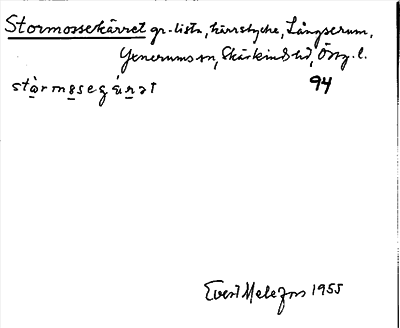 Stormossekärret gr.-lista, kärrstycke, Långserum,
Yxnerums sn, Skärkinds hd, Östg. l.
94
Evert Melefors 1955